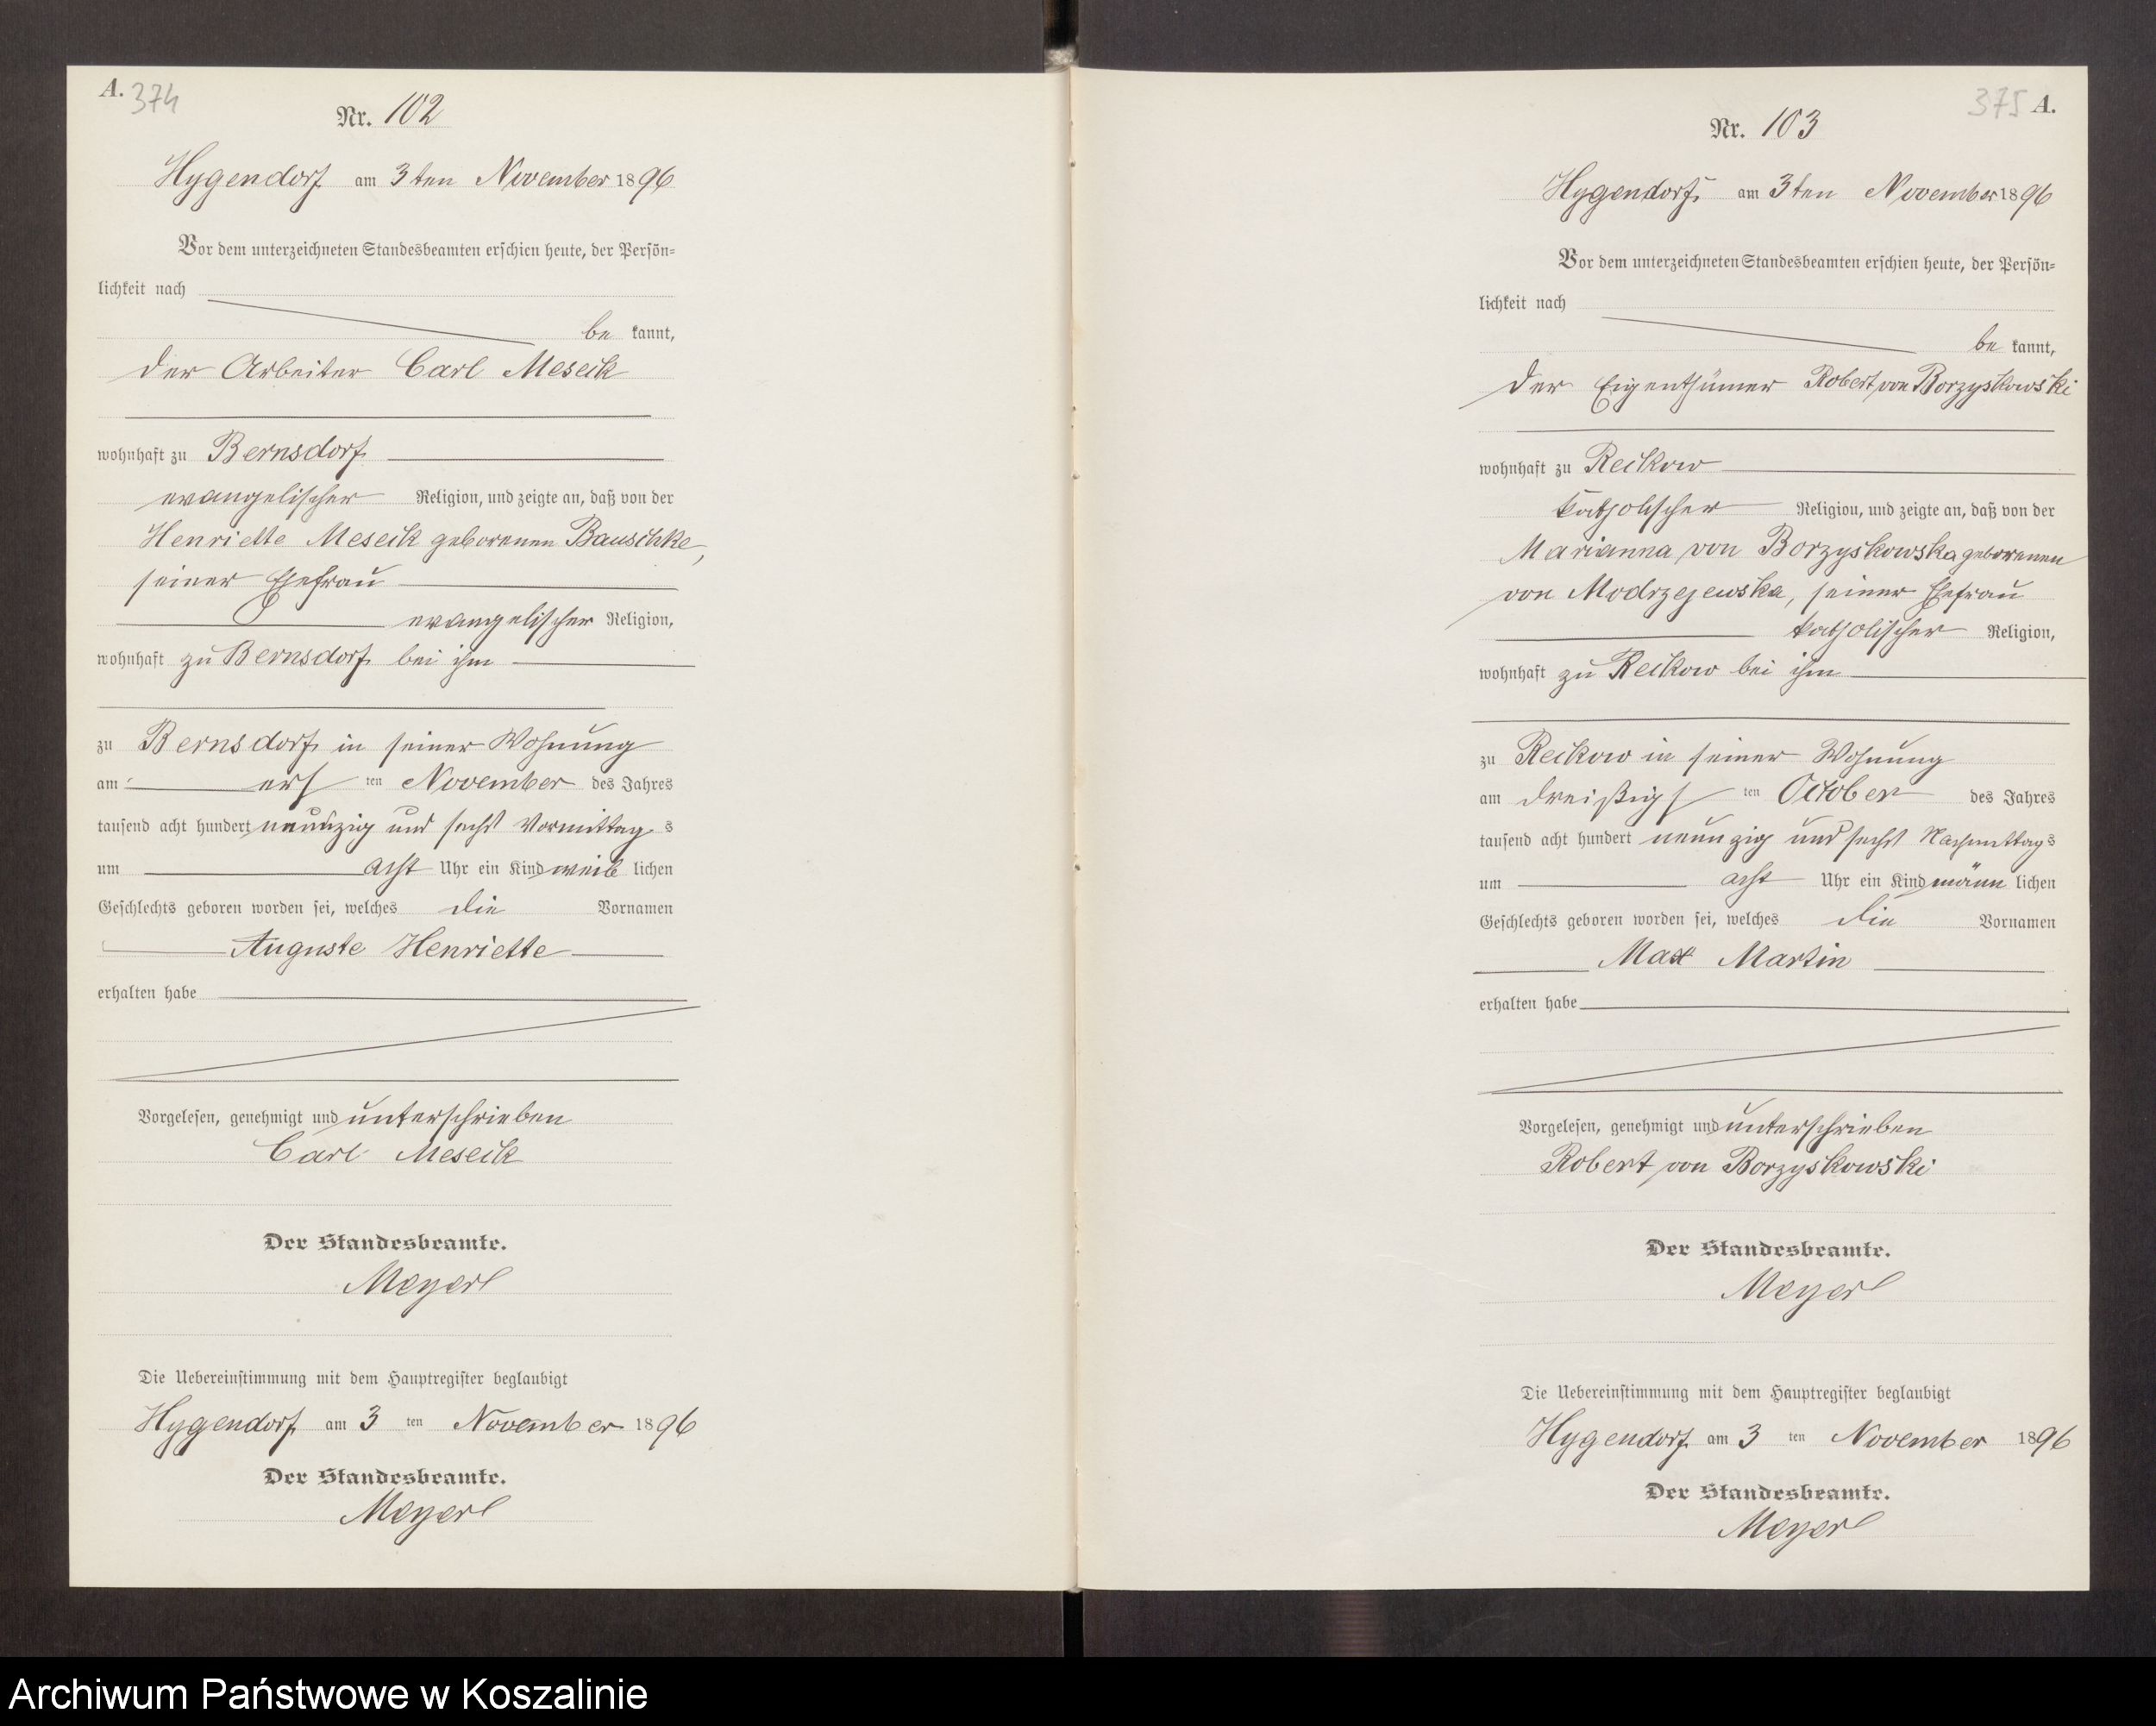 A. 374
Nr. 102
Hygendorf am 3ten November 1896
Vor dem unterzeichneten Standesbeamten erschien heute, der Persön=
lichkeit nach
be kannt,
der Arbeiter Carl Meseck
wohnhaft zu Bernsdorf
evangelischer Religion, und zeigte an, daß von der
Henriette Meseck geborenen Bauschke,
seiner Ehefrau
evangelischer Religion,
wohnhaft zu Bernsdorf bei ihm
zu Bernsdorf in seiner Wohnung
am ers ten November des Jahres
tausend acht hundert neunzig und sechs Vormittag s
um acht Uhr ein Kind weib lichen
Geschlechts geboren worden sei, welches die Vornamen
Auguste Henriette
erhalten habe
Vorgelesen, genehmigt und unterschrieben
Carl Meseck
Der Standesbeamte.
Meyer
Die Uebereinstimmung mit dem Hauptregister beglaubigt
Hygendorf am 3 ten November 1896
Der Standesbeamte.
Meyer
375 A.
Nr. 103
Hygendorf am 3ten November 1896
Vor dem unterzeichneten Standesbeamten erschien heute, der Persön=
lichkeit nach
be kannt,
der Eigenthümer Robert von Borzyskowski
wohnhaft zu Reckow
katholischer Religion, und zeigte an, daß von der
Marianna von Borzyskowska geborenen
von Modrzejewska, seiner Ehefrau
katholischer Religion,
wohnhaft zu Reckow bei ihm
zu Reckow in seiner Wohnung
am dreißigs ten October des Jahres
tausend acht hundert neunzig und sechs Nachmittag s
um acht Uhr ein Kind männ lichen
Geschlechts geboren worden sei, welches die Vornamen
Max Martin
erhalten habe
Vorgelesen, genehmigt und unterschrieben
Robert von Borzyskowski
Der Standesbeamte.
Meyer
Die Uebereinstimmung mit dem Hauptregister beglaubigt
Hygendorf am 3 ten November 1896
Der Standesbeamte.
Meyer
Archiwum Państwowe w Koszalinie